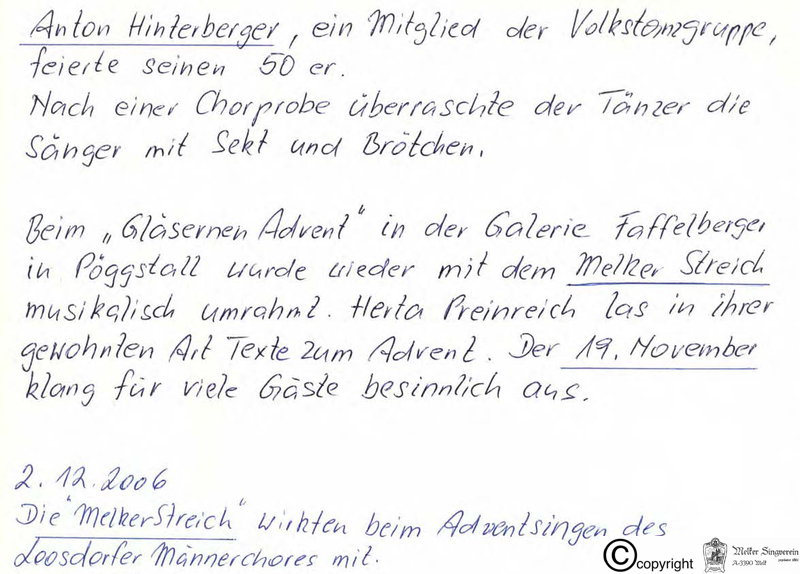 Anton Hinterberger, ein Mitglied der Volkstanzgruppe,
feierte seinen 50 er.
Nach einer Chorprobe überraschte der Tänzer die
Sänger mit Sekt und Brötchen.
Beim „Gläsernen Advent" in der Galerie Faffelberger
in Pöggstall wurde wieder mit dem Melker Streich
musikalisch umrahmt. Herta Preinreich las in ihrer
gewohnten Art Texte zum Advent. Der 19. November
klang für viele Gäste besinnlich aus.
2.12.2006
Die "MelkerStreich" wirkten beim Adventsingen des
Loosdorfer Männerchores mit.
©copyright
Melker Singverein
A-3390 Melk